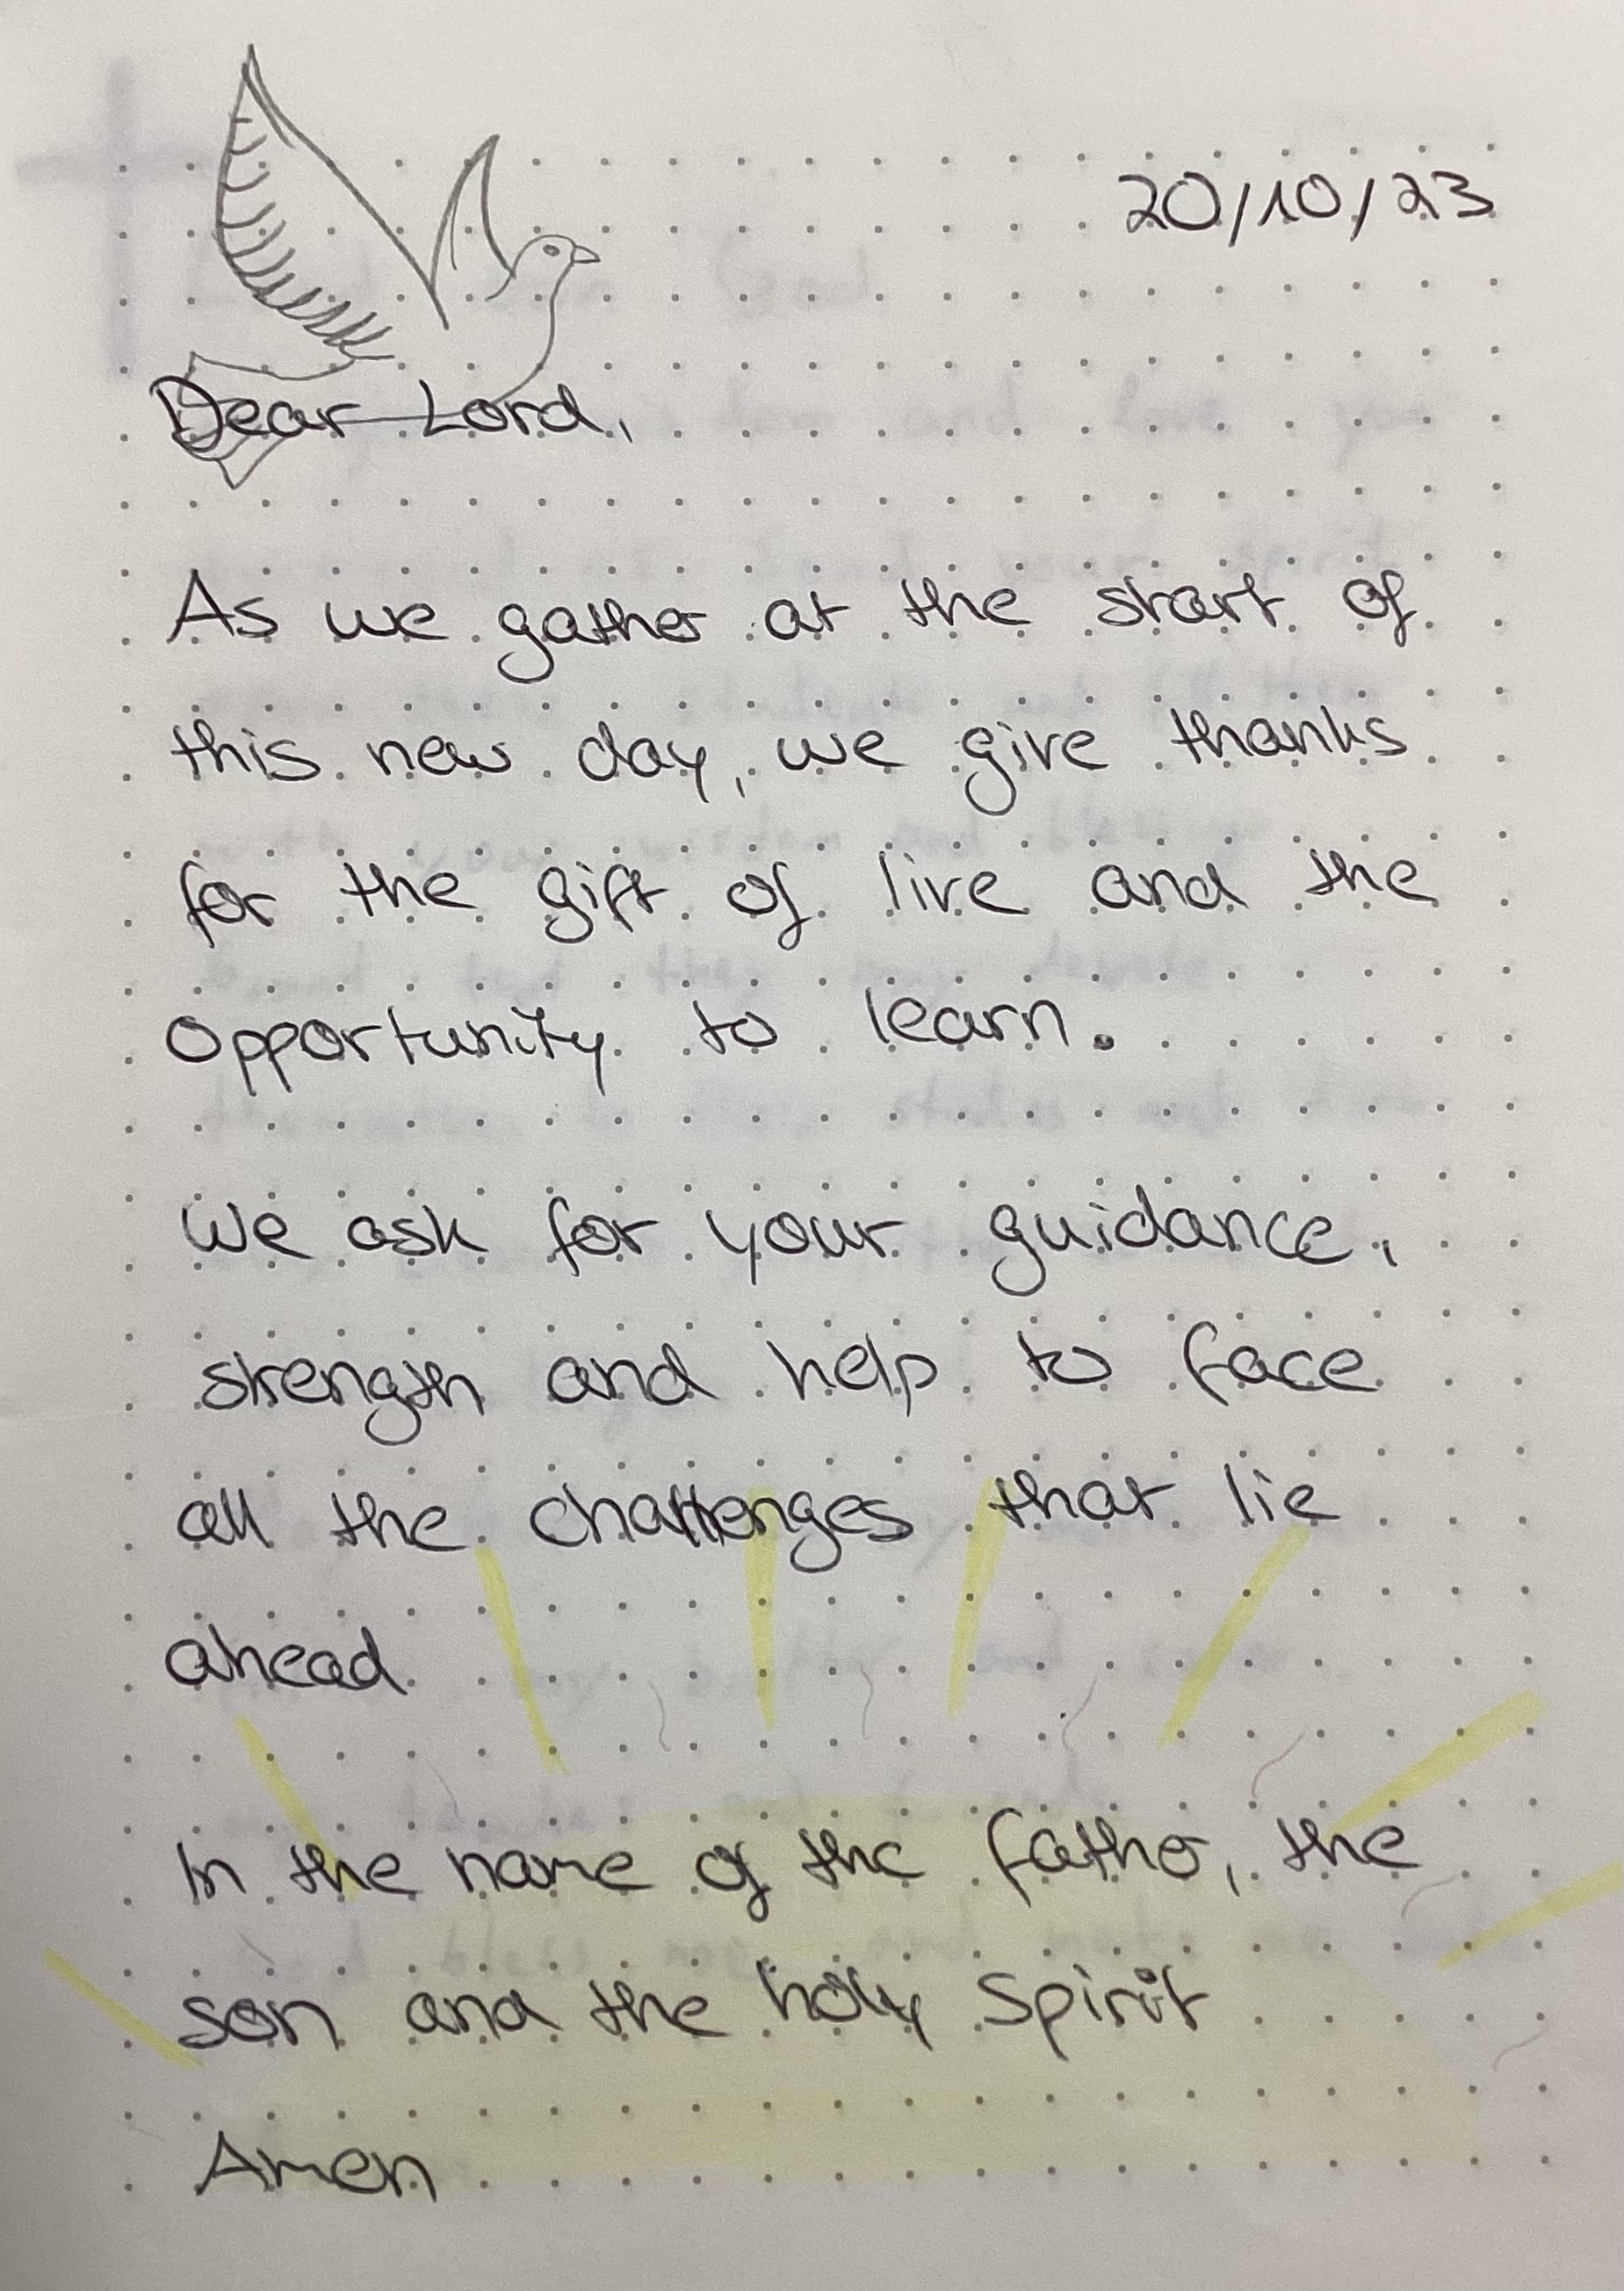 20/10/23
Dear Lord,
As we gather at the start of
this new day, we give thanks
for the gift of live and the
opportunity to learn.
We ask for your guidance,
strength and help to face
all the challenges that lie
ahead.
In the name of the father, the
son and the holy spirit
Amen